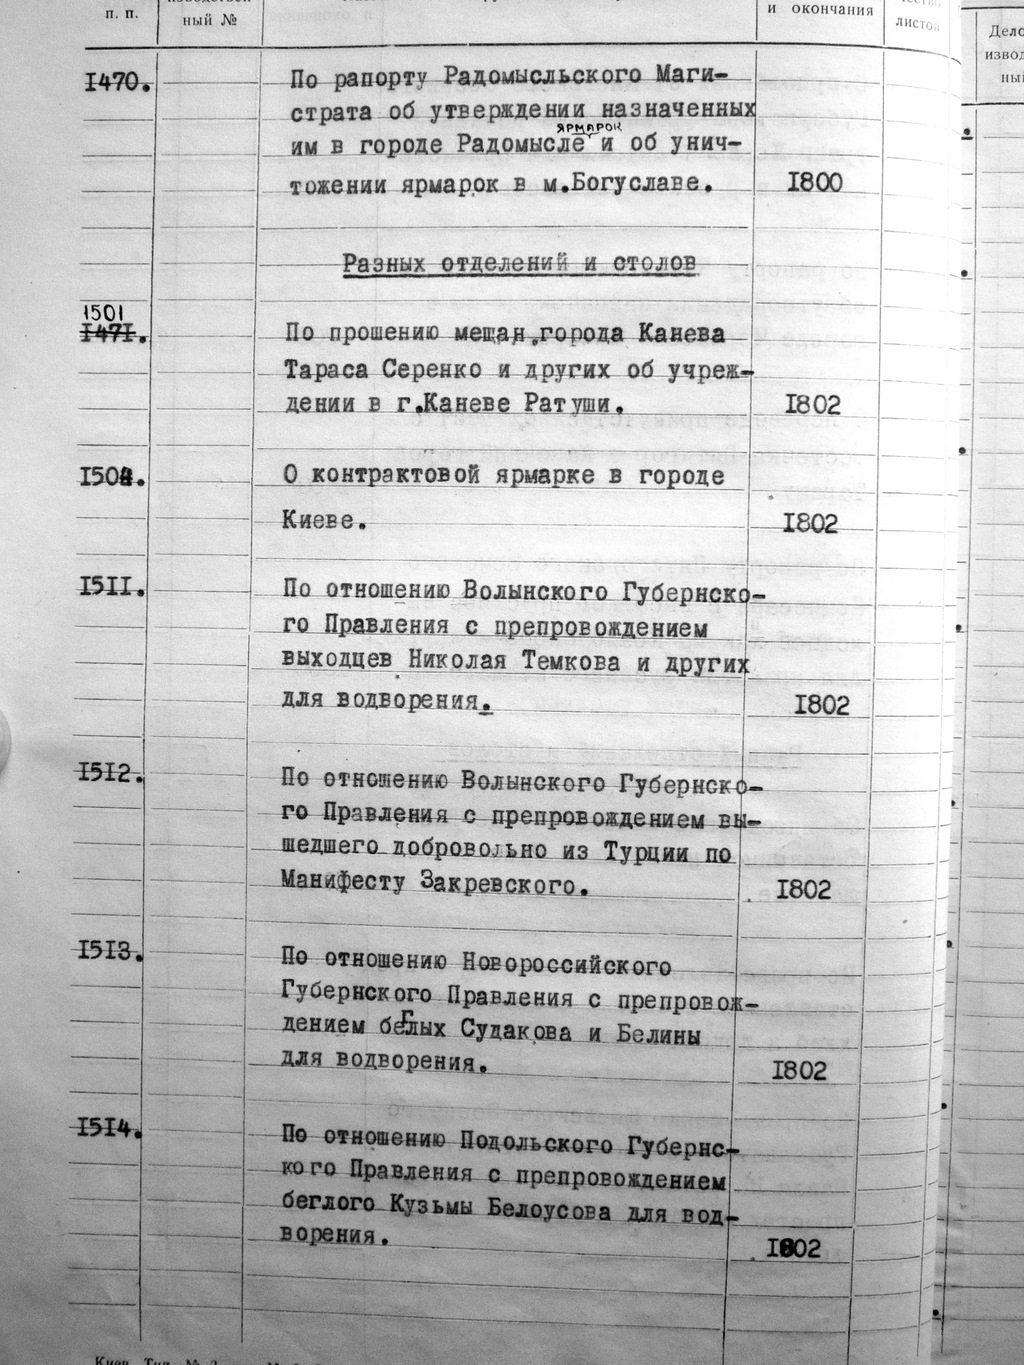 п. п.
ный №
и окончания
листов
Дело
извод
ный
1470.
По рапорту Радомысльского Маги-
страта об утверждении назначенных
ярмарок
им в городе Радомысле и об унич-
тожении ярмарок в м.Богуславе.
1800
Разных отделений и столов
1501
1471.
По прошению мещан,города Канева
Тараса Серенко и других об учреж-
дении в г.Каневе Ратуши.
1802
О контрактовой ярмарке в городе
Киеве.
1802
1511.
По отношению Волынского Губернско-
го Правления с препровождением
выходцев Николая Темкова и других
для водворения.
1802
1512.
По отношению Волынского Губернско-
го Правления с препровождением вы-
шедшего добровольно из Турции по
Манифесту Закревского.
1802
1513.
По отношению Новороссийского
Губернского Правления с препровож-
дением беглых Судакова и Белины
для водворения.
1802
1514.
По отношению Подольского Губернс-
кого Правления с препровождением
беглого Кузьмы Белоусова для вод-
ворения.
1802